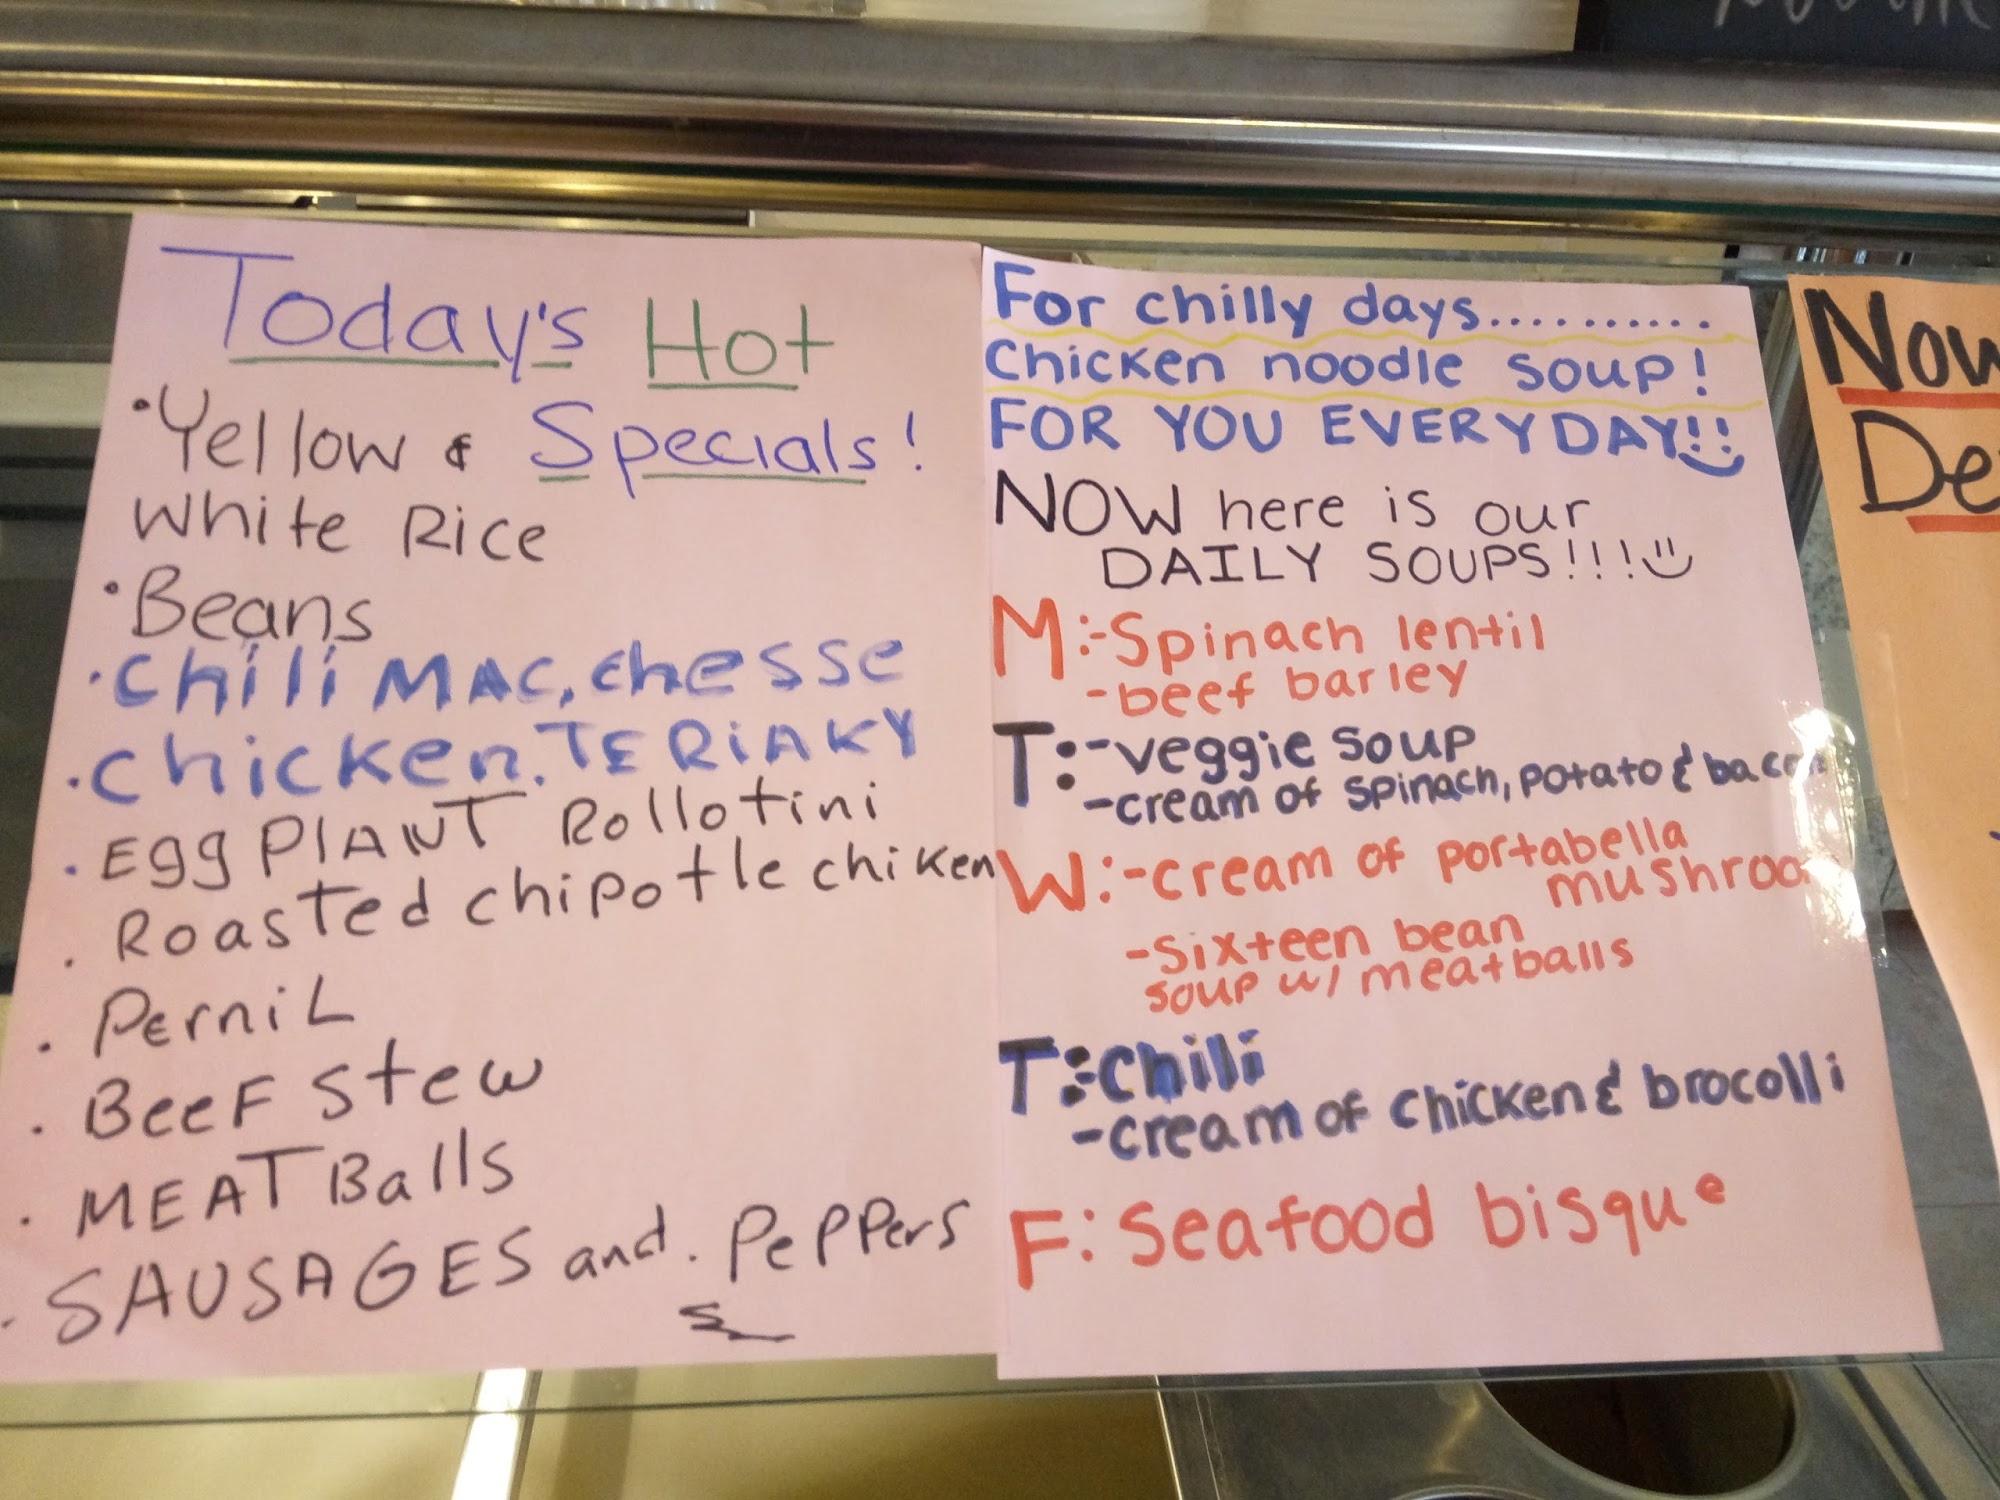 Today's Hot
Specials!
• Yellow &
White Rice
• Beans
• Chili MAC, chesse
• Chicken. TERiAKY
• Egg PlANT Rollotini
• Roasted chipotle chiken
• PerniL
• BeeF stew
• MEATBalls
• SAUSAGES and. PePPers
For chilly days..........
Chicken noodle soup!
FOR YOU EVERYDAY!!
NOW here is our
DAILY SOUPS!!!
M:-Spinach lentil
-beef barley
T:-veggie soup
-cream of spinach, potato & bacon
W:-cream of portabella
mushroo
-sixteen bean
soup w/ meatballs
T:-chili
-cream of chicken & brocolli
F: Seafood bisque
Now
De